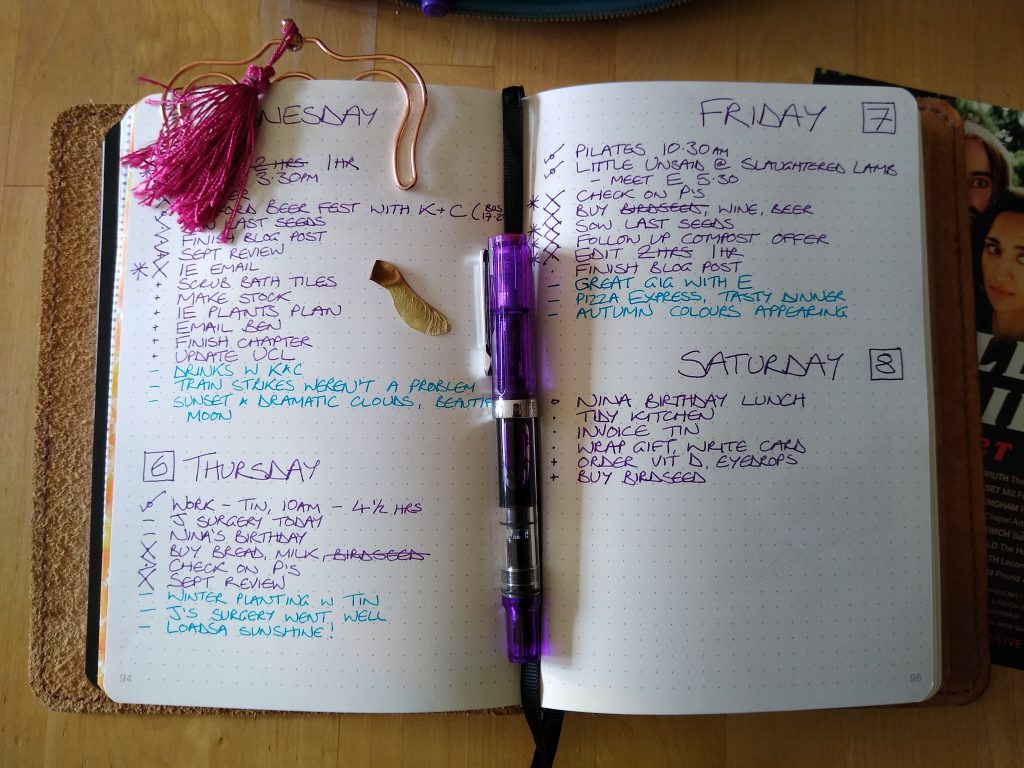 NESDAY
2 HRS 1HR
3.30PM
ORD BEER FEST WITH K+C (BUS
LAST SEEDS
FINISH BLOG POST
SEPT REVIEW
* IE EMAIL
+ SCRUB BATH TILES
+ MAKE STOCK
+ IE PLANTS PLAN
+ EMAIL BEN
+ FINISH CHAPTER
+ UPDATE UCL
- DRINKS W K&C
- TRAIN STRIKES WEREN'T A PROBLEM
- SUNSET & DRAMATIC CLOUDS, BEAUTI
MOON
6 THURSDAY
WORK - TIN, 10AM - 4½ HRS
- J SURGERY TODAY
- NINA'S BIRTHDAY
X BUY BREAD, MILK, BIRDSEED
X CHECK ON P'S
X SEPT REVIEW
- WINTER PLANTING W TIN
- J'S SURGERY WENT WELL
- LOADSA SUNSHINE!
94
FRIDAY 7
PILATES 10.30AM
LITTLE UNSAID @ SLAUGHTERED LAMB
- MEET E 5:30
X CHECK ON P'S
* X BUY BIRDSEED, WINE, BEER
X SOW LAST SEEDS
* X FOLLOW UP COMPOST OFFER
* X EDIT 2HRS 1HR
· FINISH BLOG POST
- GREAT GIG WITH E
- PIZZA EXPRESS, TASTY DINNER
- AUTUMN COLOURS APPEARING
SATURDAY 8
o NINA BIRTHDAY LUNCH
· TIDY KITCHEN
· INVOICE TIN
· WRAP GIFT, WRITE CARD
+ ORDER VIT D, EYEDROPS
+ BUY BIRDSEED
95